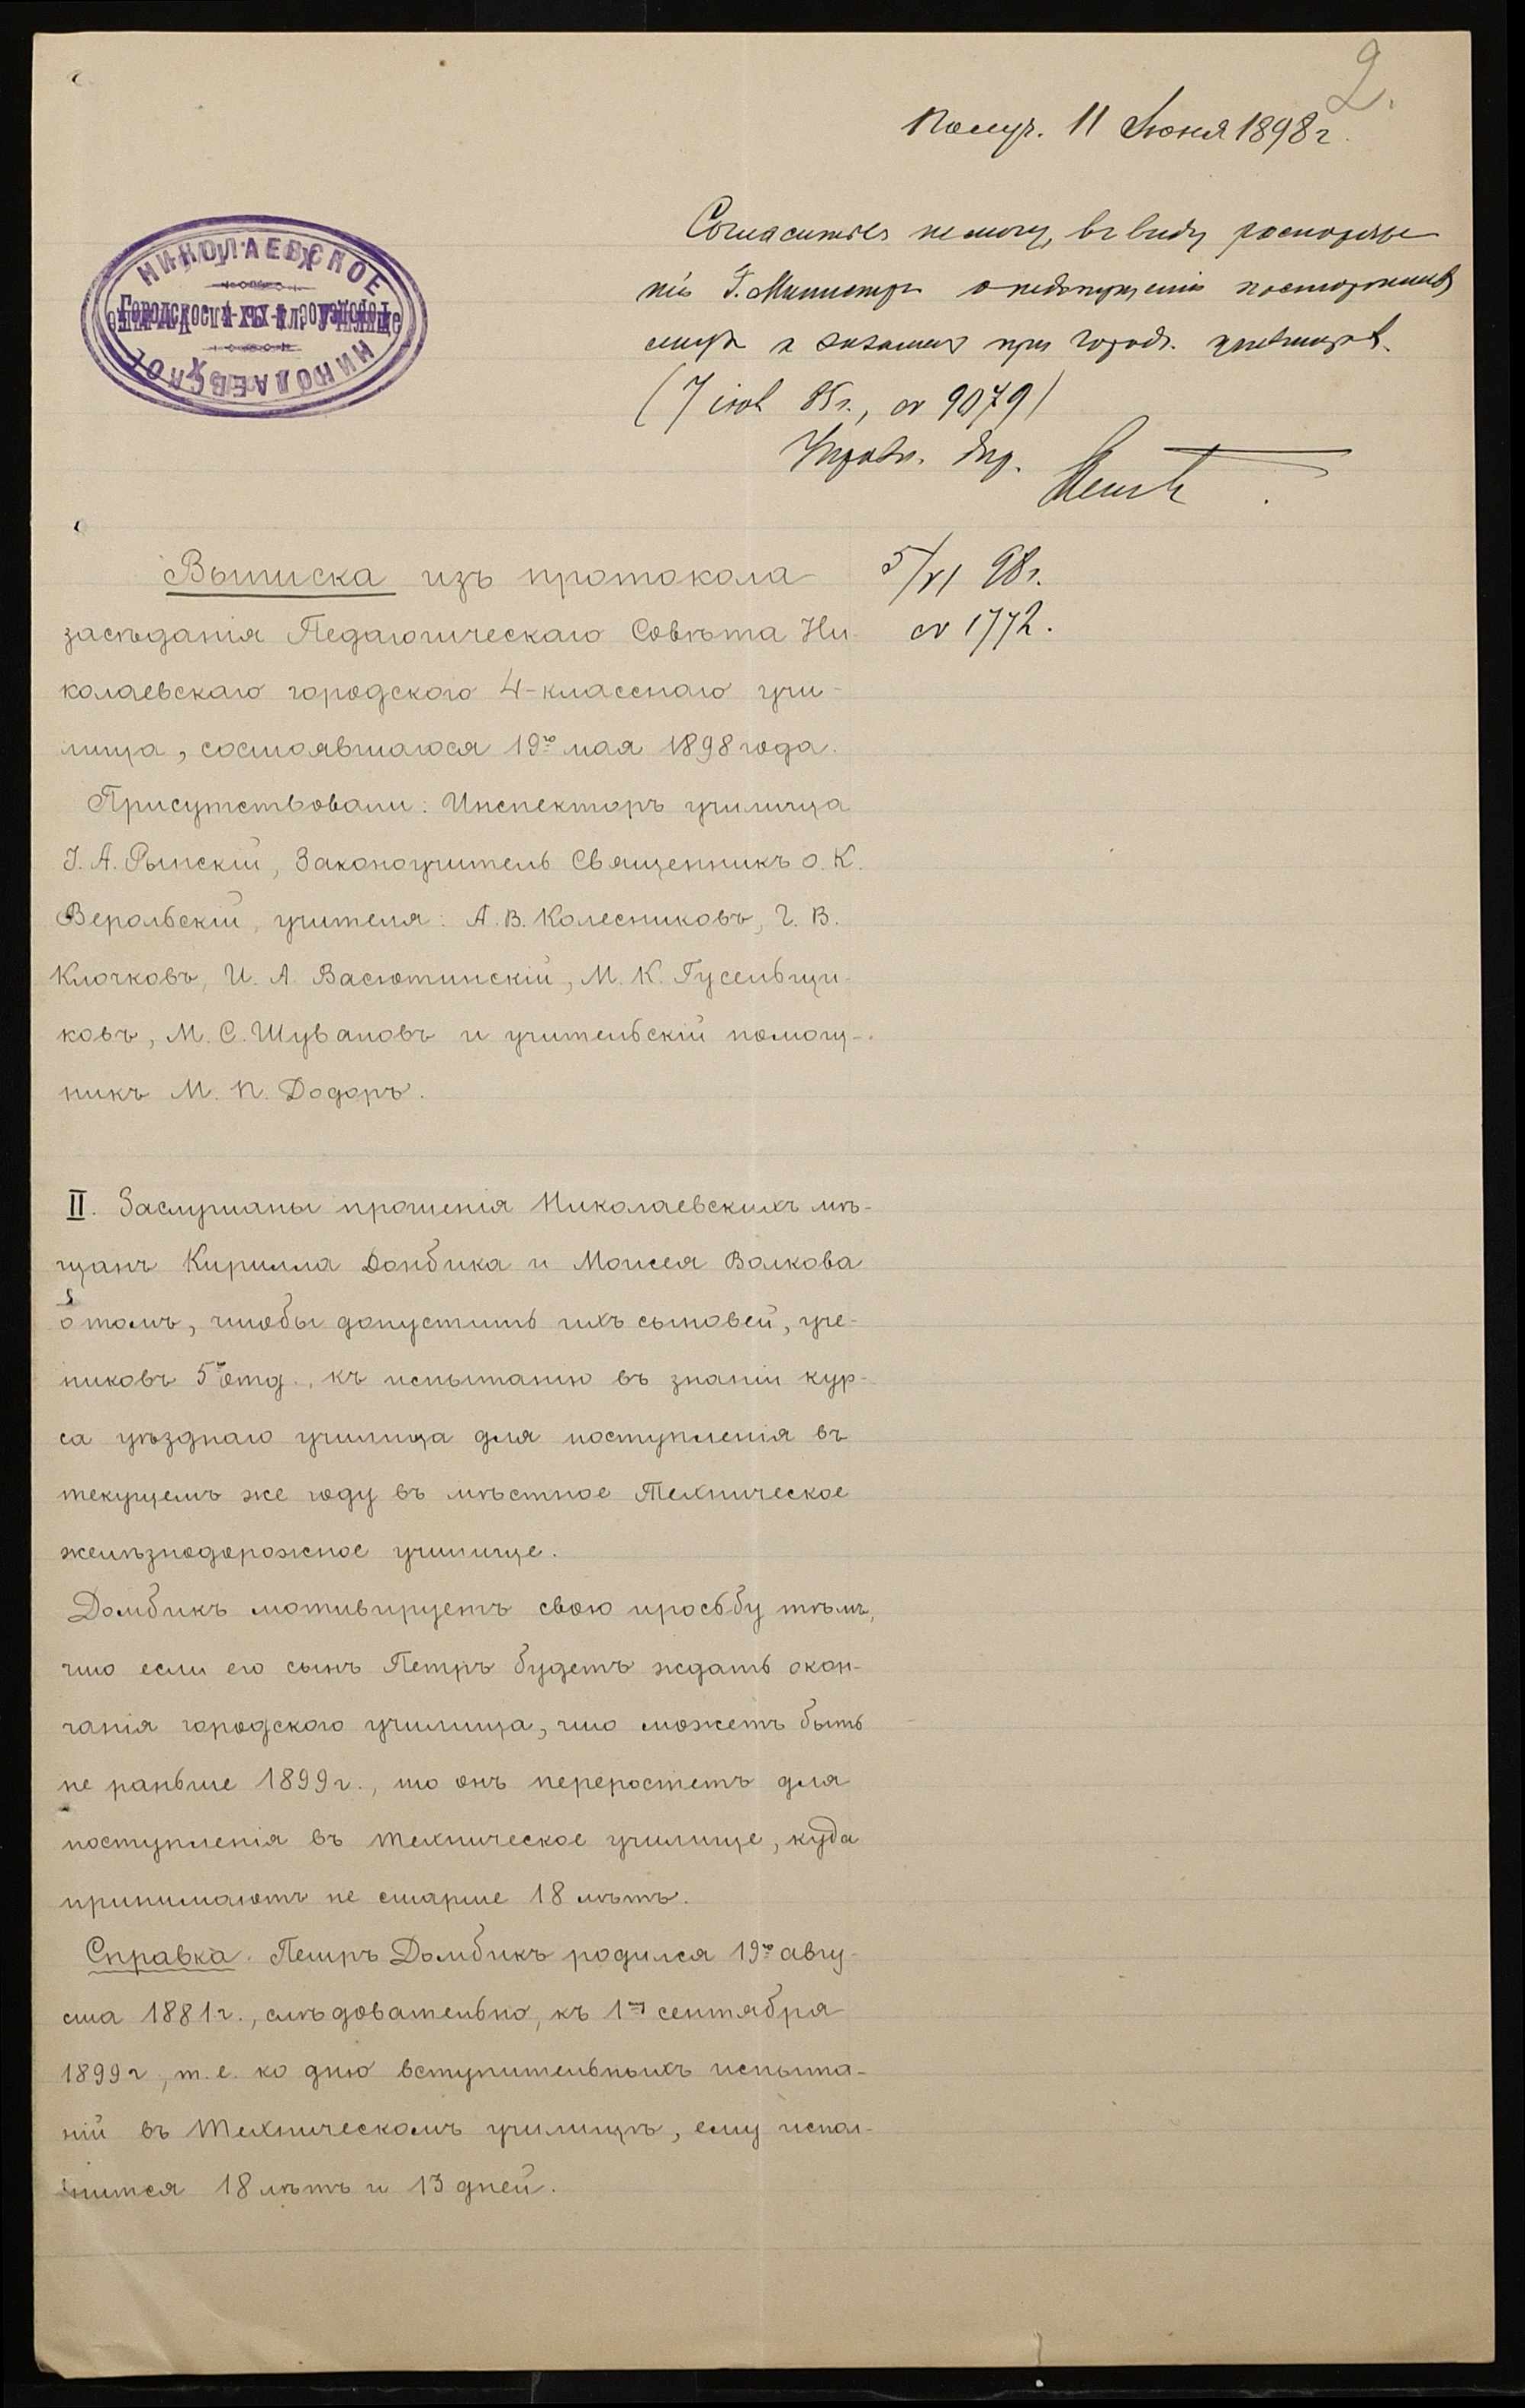 2.
Получ. 11 Июня 1898 г.
НИКОЛАЕВСКОЕ
Согласиться не могу, въ виду распоряже
нія Г. Министра о недопущеніи постороннихъ
лицъ къ экзамен при городс. училищахъ.
(7 іюл 85 г., № 9079)
Управл. Окр.
5/VI 98 г.
№ 1772.
Выписка изъ протокола
засѣданія Педагогическаго Совѣта Ни-
колаевскаго городского 4-класснаго учи-
лища, состоявшагося 19го мая 1898 года.
Присутствовали: Инспекторъ училища
І. А. Рынскій, Законоучитель Священникъ о. К.
Верольскій, учителя: А. В. Колесниковъ, Г. В.
Клочковъ, И. А. Васютинскій, М. К. Гусельщи-
ковъ, М. С. Шуваловъ и учительскій помощ-
никъ М. П. Додоръ.
II. Заслушаны прошенія Николаевскихъ мѣ-
щанъ Кирилла Донбика и Моисея Волкова
о томъ, чтобы допустить ихъ сыновей, уче-
никовъ 5го отд., къ испытанію въ знаніи кур-
са уѣзднаго училища для поступленія въ
текущемъ же году въ мѣстное Техническое
желѣзнодорожное училище.
Домбикъ мотивируетъ свою просьбу тѣмъ,
что если его сынъ Петръ будетъ ждать окон-
чанія городского училища, что можетъ быть
не раньше 1899 г., то онъ переростетъ для
поступленія въ техническое училище, куда
принимаютъ не старше 18 лѣтъ.
Справка. Петръ Домбикъ родился 19го авгу-
ста 1881 г., слѣдовательно, къ 1му сентября
1899 г., т. е. ко дню вступительныхъ испыта-
ній въ Техническомъ училищѣ, ему испол-
нится 18 лѣтъ и 13 дней.